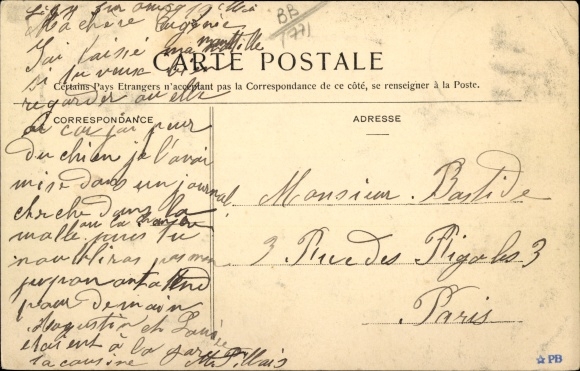 BB
1771
Ma chère Eugénie
J'ai laissé ma mantille
si tu veux
regarder où elle
CARTE POSTALE
Certains Pays Etrangers n'acceptant pas la Correspondance de ce côté, se renseigner à la Poste.
CORRESPONDANCE
ADRESSE
car j'ai peur
du chien je l'avai
mise dans un journal
cherche dans la
malle puis tu
nous
on attend
pour demain
Augustin et Louise
étaient à la gare
ta cousine
Monsieur Bastide
3 Rue des Pigalle 3
Paris
PB